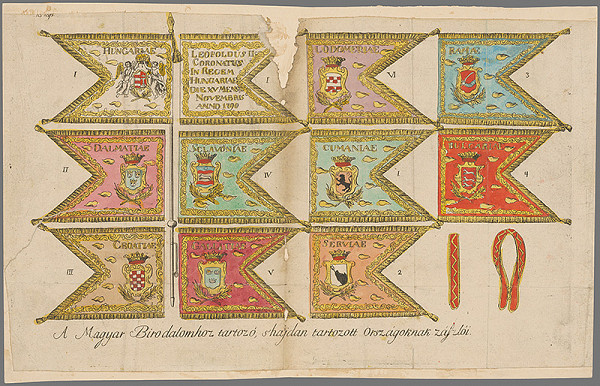 HUNGARIAE
I
LEOPOLDUS II:
CORONATUS
IN REGEM
HUNGARIAE
DIE XV MENSIS
NOVEMBRIS
ANNO 1790
I
LODOMERIAE
VI
RAMAE
3
DALMATIAE
II
SCLAVONIAE
IV
CUMANIAE
1
BULGARIAE
4
CROATIAE
III
V
SERVIAE
2
A Magyar Birodalomhoz tartozó, s hajdan tartozott Országoknak zászlói.